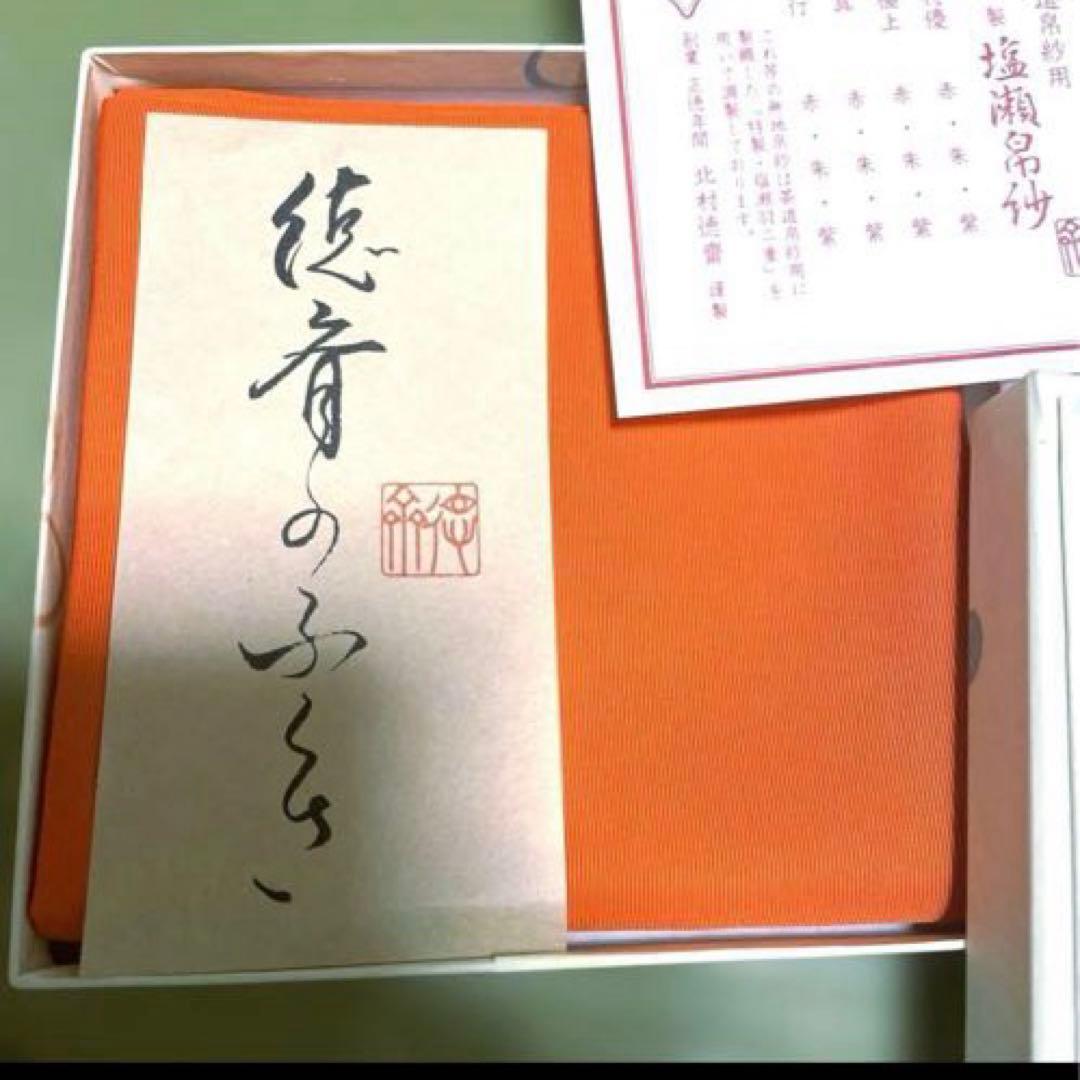 徳斎のふくさ
道帛紗用
製 塩瀬帛紗
優 赤・朱・紫
優上 赤・朱・紫
赤・朱・紫
行 赤・朱・紫
これ等の無地帛紗は茶道帛紗用に
製織した「特製・塩瀬羽二重」を
用いて謹製しております。
創業 正徳年間 北村徳齋 謹製